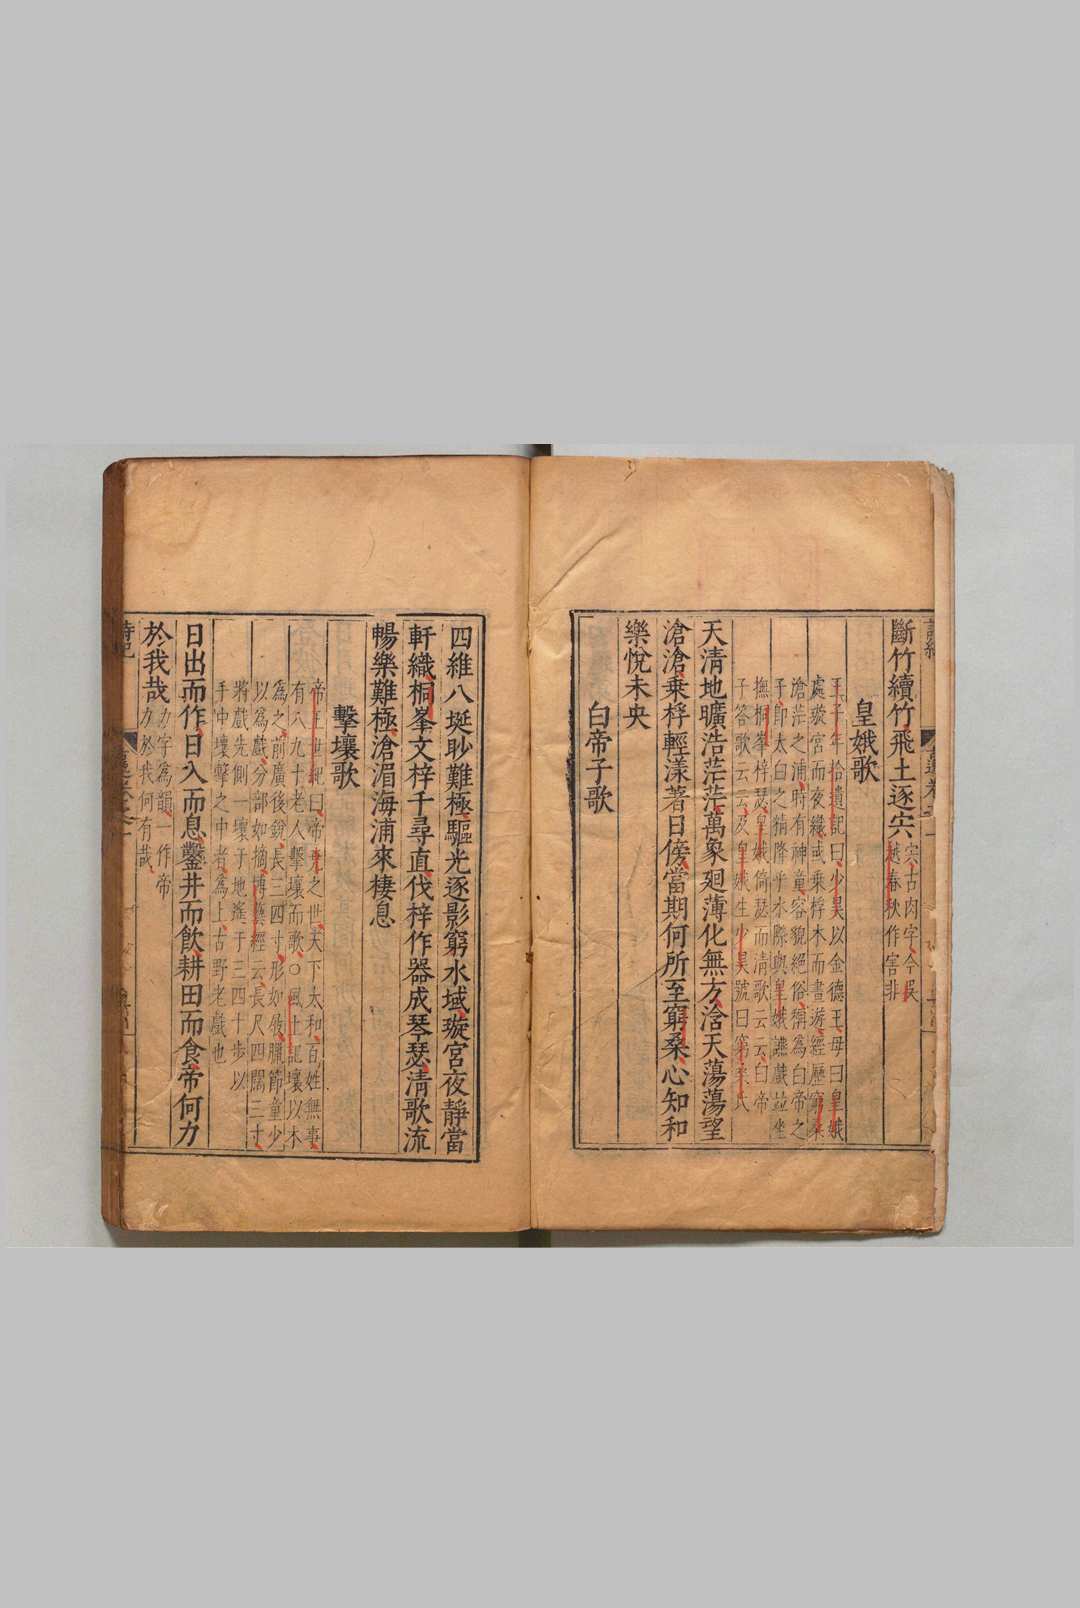 斷竹續竹飛土逐宍宍古肉字今吳
越春秋作害非
皇娥歌
王子年拾遺記曰少昊以金德王母曰皇娥
處璇宮而夜織或乗桴木而晝游經歷窮桑
滄茫之浦時有神童容貌絕俗稱為白帝之
子即太白之精降乎水際與皇娥讌戲並坐
撫桐峯梓瑟皇娥倚瑟而清歌云云白帝
子答歌云云及皇娥生少昊號曰窮桑氏
天清地曠浩茫茫萬象廻薄化無方浛天蕩蕩望
滄滄乗桴輕漾著日傍當期何所至窮桑心知和
樂悅未央
白帝子歌
四維八埏眇難極驅光逐影窮水域璇宮夜靜當
軒織桐峯文梓千尋直伐梓作器成琴瑟清歌流
暢樂難極滄湄海浦來棲息
擊壤歌
帝王世紀曰帝堯之世天下太和百姓無事
有八九十老人擊壤而歌○風土記壤以木
為之前廣後銳長三四寸形如履臘節童少
以為戲分部如擿博藝經云長尺四闊三寸
將戲先側一壤于地遙于三四十步以
手中壤擊之中者為上古野老戲也
日出而作日入而息鑿井而飲耕田而食帝何力
於我哉力字為韻一作帝
力於我何有哉
詩紀